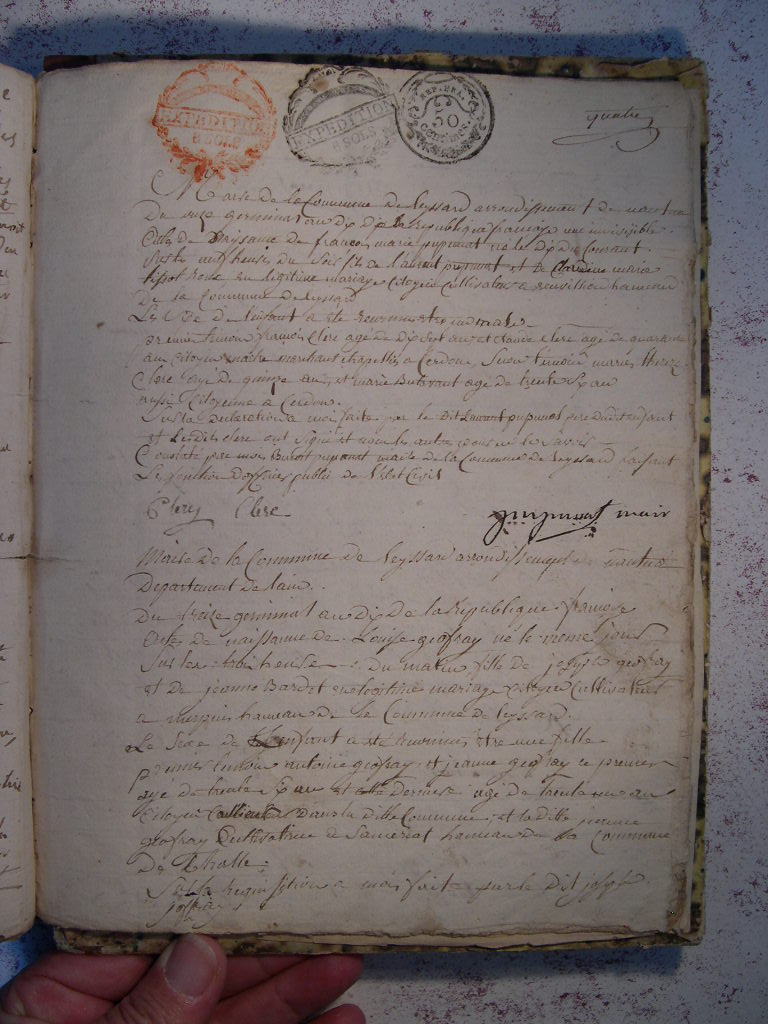 EXPEDITION
8 SOLS
EXPEDITION
8 SOLS
REP. FRA.
50
CENTIMES
quatre
Marie de la Commune de Leyssard arrondissement de nantua
Du onze germinal an Dix de la Republique française une indivisible
Acte de Naissance de francois marie pupunat né le Dix Du Courant
Sur les neuf heures du Soir fils de Laurent pupunat et de Claudine marie
en legitime mariage Citoyen Cultivateur a hameau
De la Commune de Leyssard
Le Sexe de Lenfant a été reconnu etre un male
premier temoin francois Clerc agé de Dix Sept ans et Clerc agé de quarante
ans Citoyen marchant a Cerdon, Second temoin marie
Clerc agé de quinze ans, et marie Butavant agé de trente Six ans
aussi Citoyenne a Cerdon.
Sur la Declaration a moi faite par le Dit Laurent pupunat pere Dudit enfant
et Lesdits Clerc ont Signé et non les autres pour ne le savoir
Constaté par moi Benoit pupunat maire de la Commune de Leyssard faisant
Les fonctions Dofficier public de Letat Civil
Clerc Clerc
pupunat mair
Mairie de la Commune de Leyssard arrondissement de nantua
Departement de lain.
Du treize germinal an Dix De la Republique francoise
Acte de naissanne de Louise geofray né le meme jour
Sur les trois heure du matin fille de joseph geofray
et De jeanne Bardet en legitime mariage Citoyen Cultivateur
a hameau De la Commune de Leyssard.
Le Sexe de Lenfant a été reconnu etre une fille
premier temoin antoine geofray et jeanne geofray ce premier
age de trente Six an et cette Derniere agé de trente un an
Citoyen Cultivateur Dans la ditte Commune, et la ditte jeanne
geofray Cultivatrice a hameau De la Commune
De Challe.
Sur la Requisition a moi fait par le Dit joseph
jofray